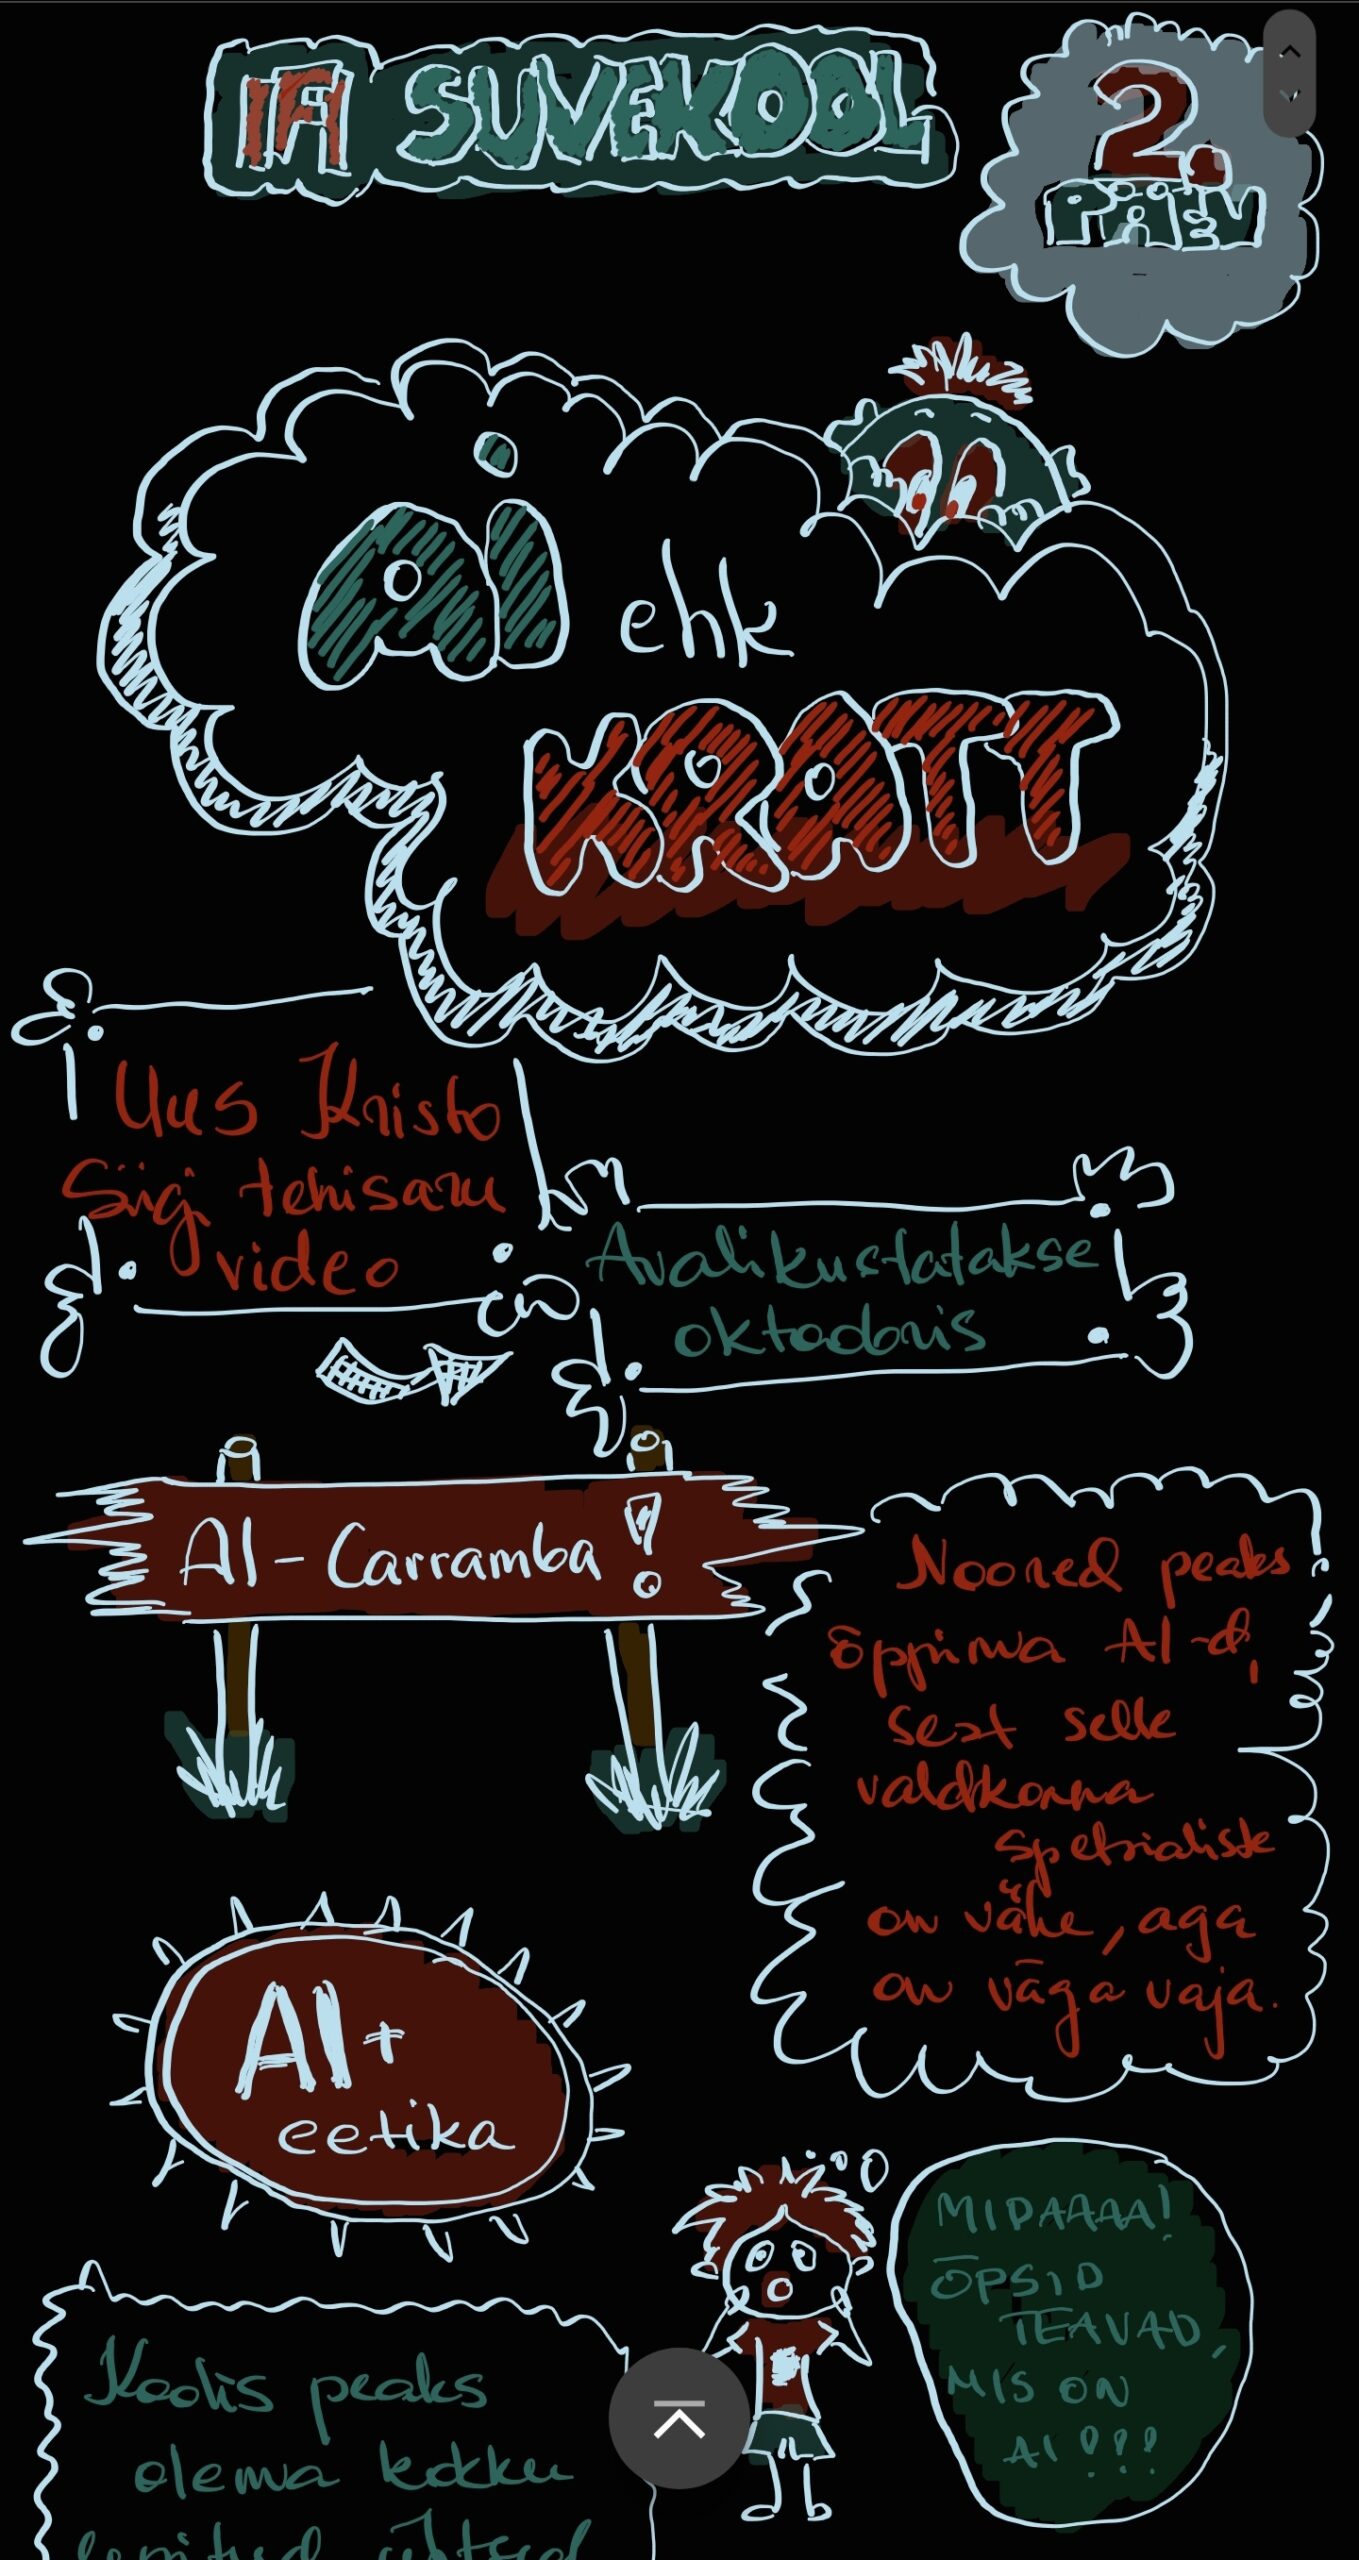 IFI SUVEKOOL
2.
PÄEV
AI ehk
KRATT
Uus Kristo
Siigi tehisaru
video
Avalikustatakse
oktoobris
AI - Carramba!
Noored peaks
õppima AI-d,
sest selle
valdkonna
spetsialiste
on vähe, aga
on väga vaja.
AI +
eetika
MIDAAAA!
ÕPSID
TEAVAD,
MIS ON
AI!!!
Koolis peaks
olema kokku
lepitud ühtsed